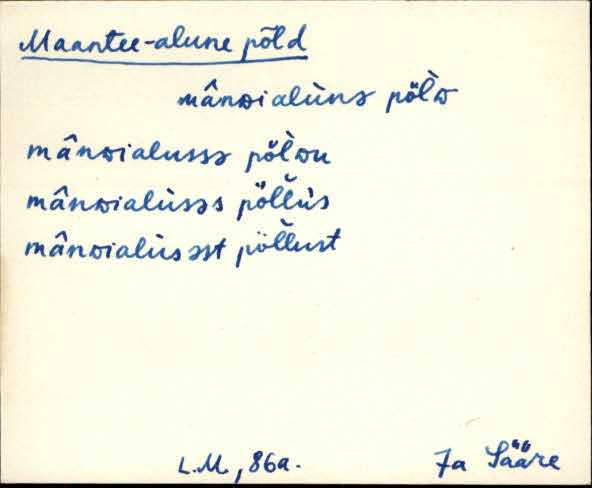 Maantee-alune põld
mânᴅialùnə pöl̀ᴅ
mânᴅialussə pöl̀ᴅu
mânᴅialùsəs pöl̆l̀us
mânᴅialùsəst pöl̆l̀ust
L.M., 86a.
Ja Sääre